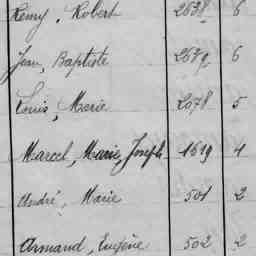 Rémy, Robert 2638 6
Jean, Baptiste 2639 6
Louis, Marie 2078 5
Marcel, Marie, Joseph 1619 4
André, Marie 501 2
Armand, Eugène 502 2